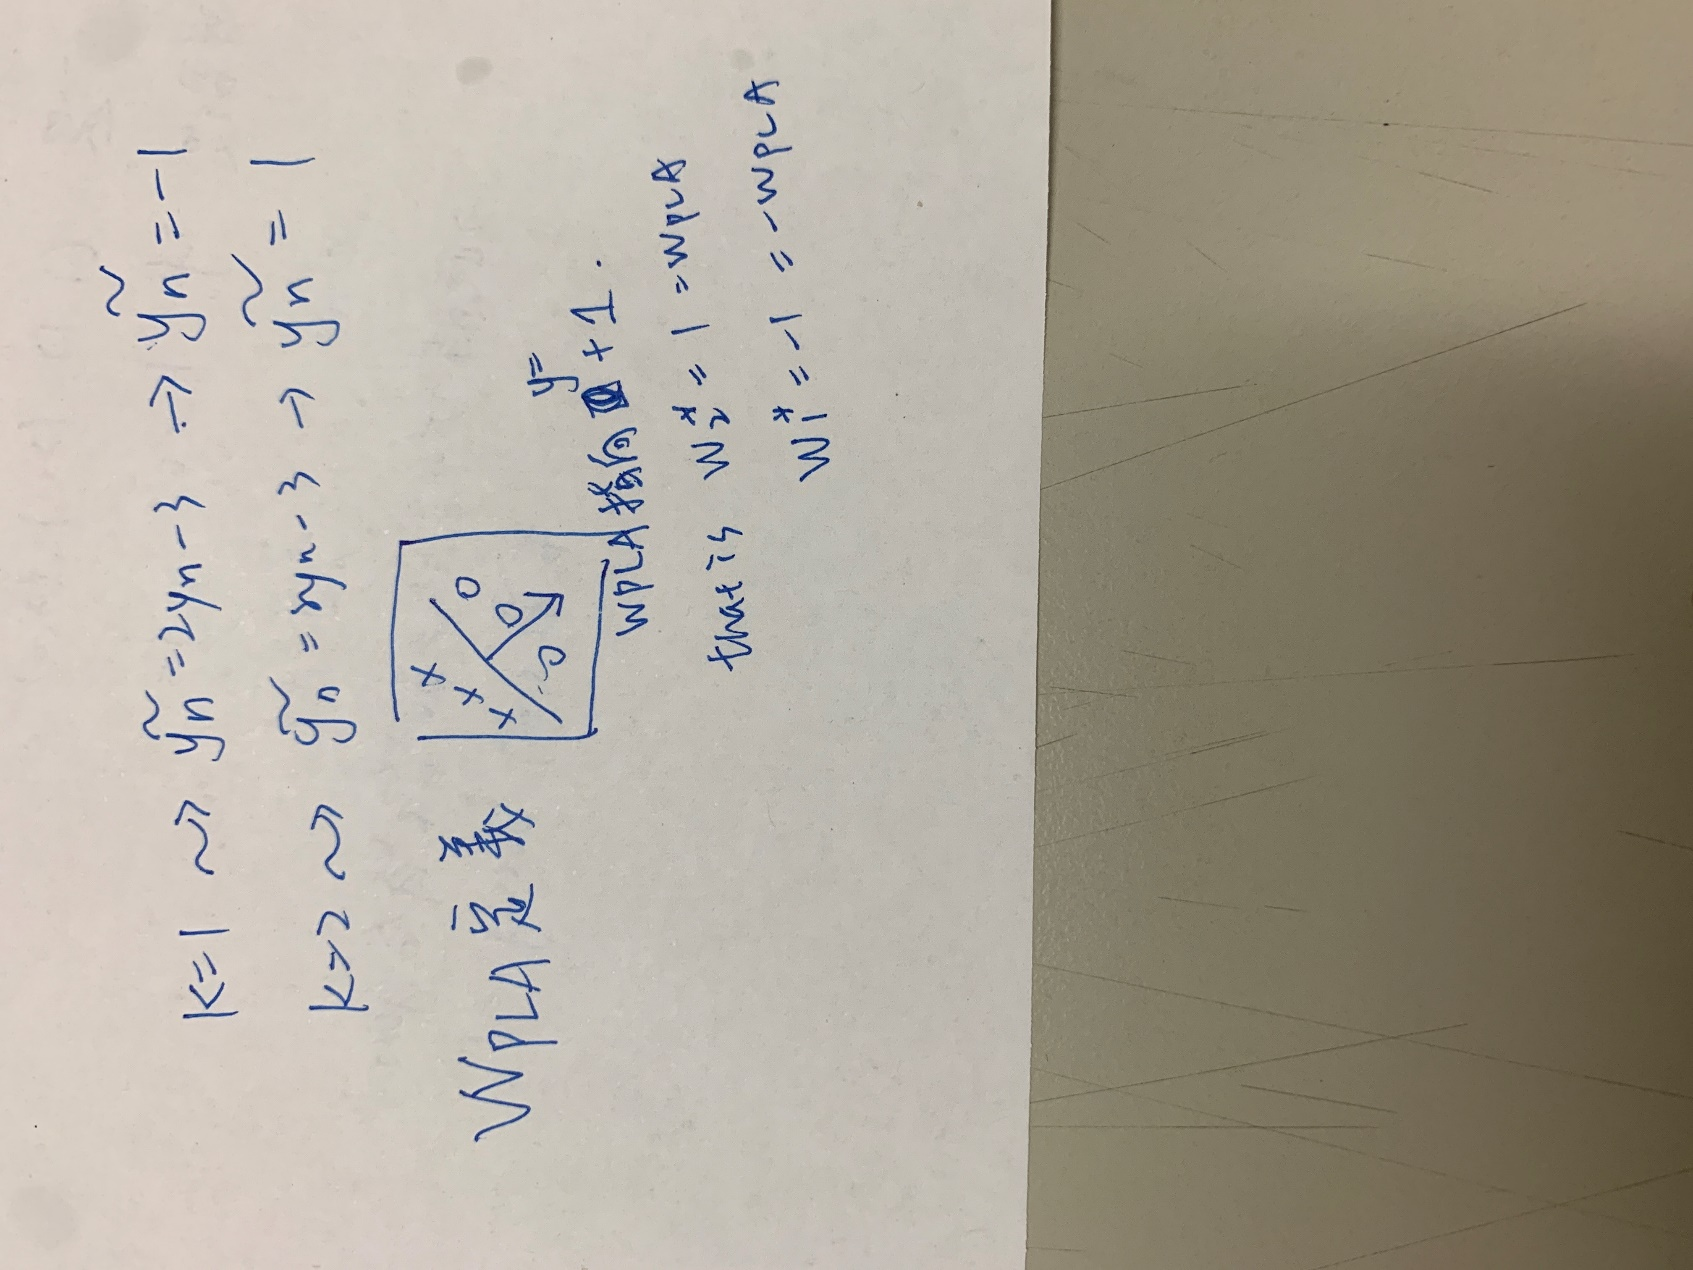 k=1 ⤳ ỹn=2yn-3 → ỹn=-1
k=2 ⤳ ỹn=2yn-3 → ỹn=1
WPLA定義
x x x
o o o
y=
WPLA指向 +1.
that is W2*=1=WPLA
W1*=-1=-WPLA